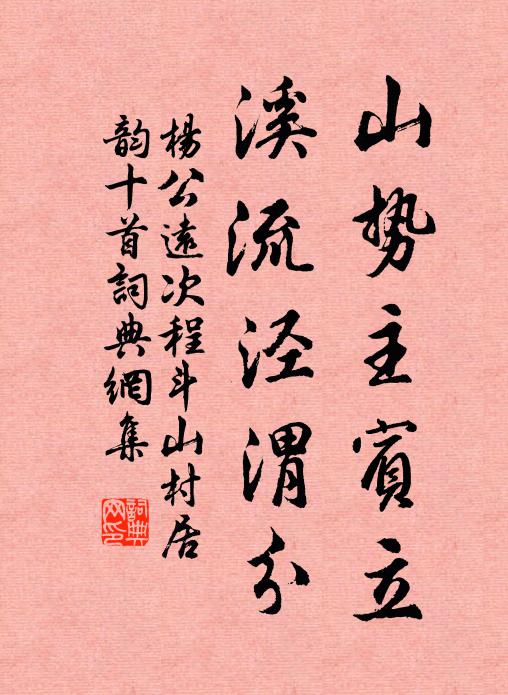 山势主賓立
溪流泾渭分
楊公遠次程斗山村居
韵十首詞典網集
詞典
网印